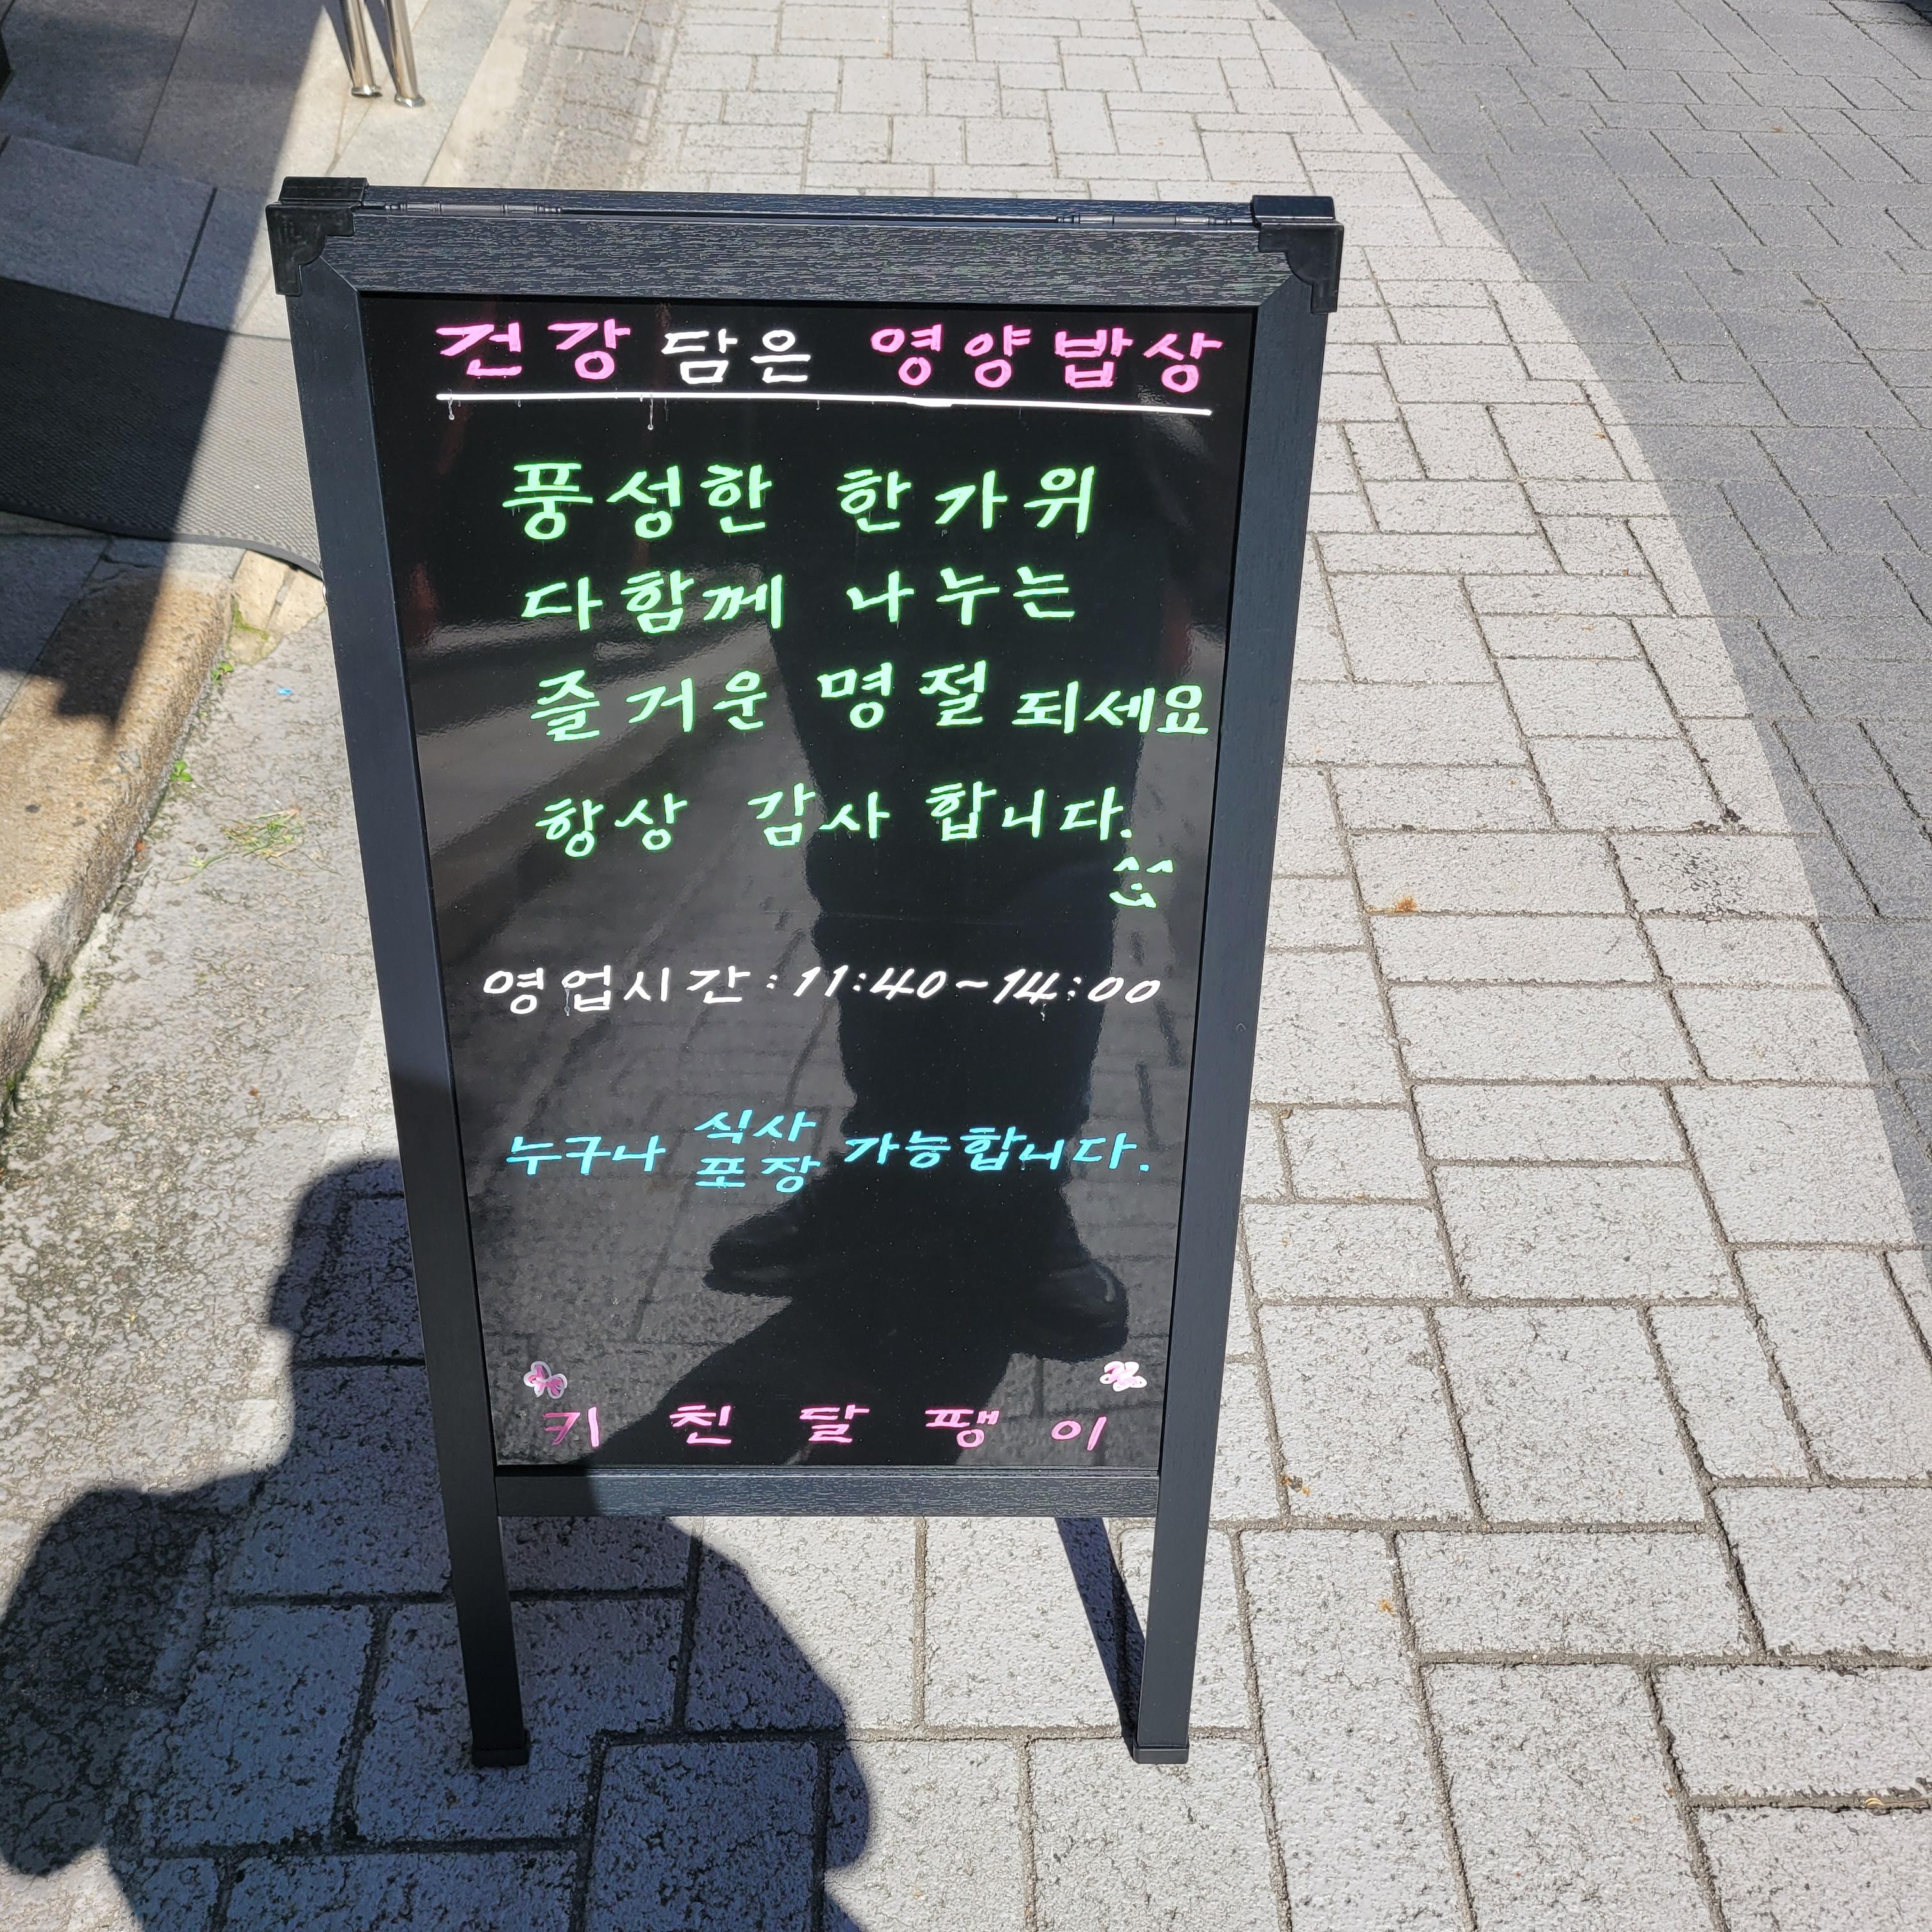 건강 담은 영양밥상
풍성한 한가위
다함께 나누는
즐거운 명절 되세요
항상 감사 합니다.
영업시간:11:40~14:00
누구나 식사 포장 가능합니다.
키친달팽이